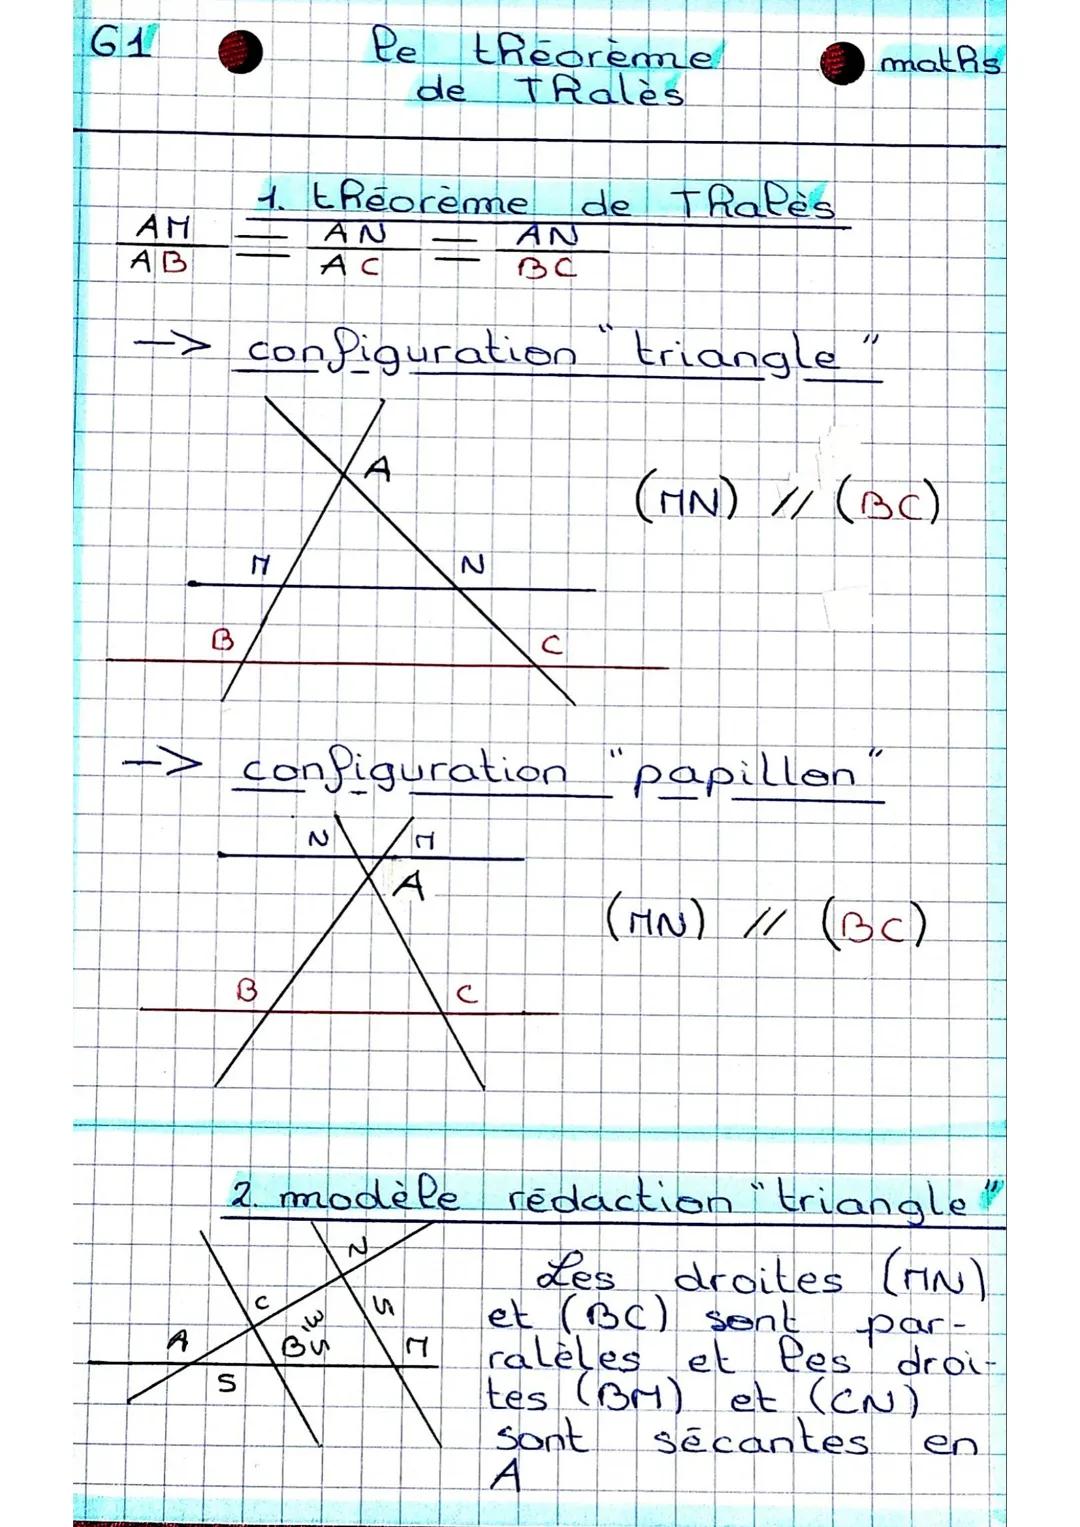 G1
le théorème
maths
de Thalès
1. théorème de Thalès
AM/AB = AN/AC = AN/BC
-> configuration "triangle"
A
(MN) // (BC)
M N
B C
-> configuration "papillon"
N M
A
(MN) // (BC)
B C
2. modèle rédaction "triangle"
N
Les droites (MN)
C 3 5
et (BC) sont par-
A B 5 M
ralèles et les droi-
S
tes (BM) et (CN)
sont sécantes en
A